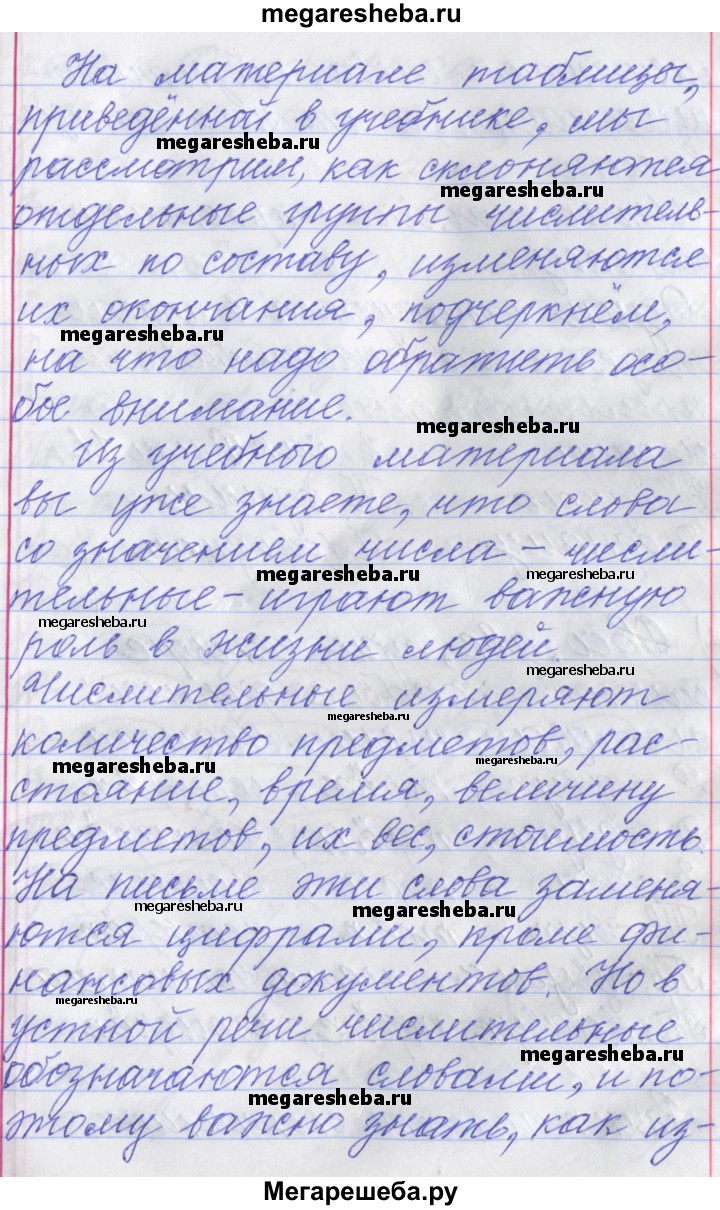 megaresheba.ru
На материале таблицы,
приведённой в учебнике, мы
megaresheba.ru
рассмотрим, как склоняются
megaresheba.ru
отдельные группы числитель-
ных по составу, изменяются
их окончания, подчеркнём,
megaresheba.ru
на что надо обратить осо-
бое внимание.
megaresheba.ru
Из учебного материала
вы уже знаете, что слова
со значением числа – числи-
megaresheba.ru
megaresheba.ru
тельные – играют важную
megaresheba.ru
роль в жизни людей.
megaresheba.ru
Числительные измеряют
megaresheba.ru
количество предметов, рас-
megaresheba.ru
megaresheba.ru
стояние, время, величину
предметов, их вес, стоимость.
На письме эти слова заменя-
megaresheba.ru
megaresheba.ru
ются цифрами, кроме фи-
нансовых документов. Но в
megaresheba.ru
устной речи числительные
megaresheba.ru
обозначаются словами, и по-
megaresheba.ru
этому важно знать, как из-
Мегарешеба.ру